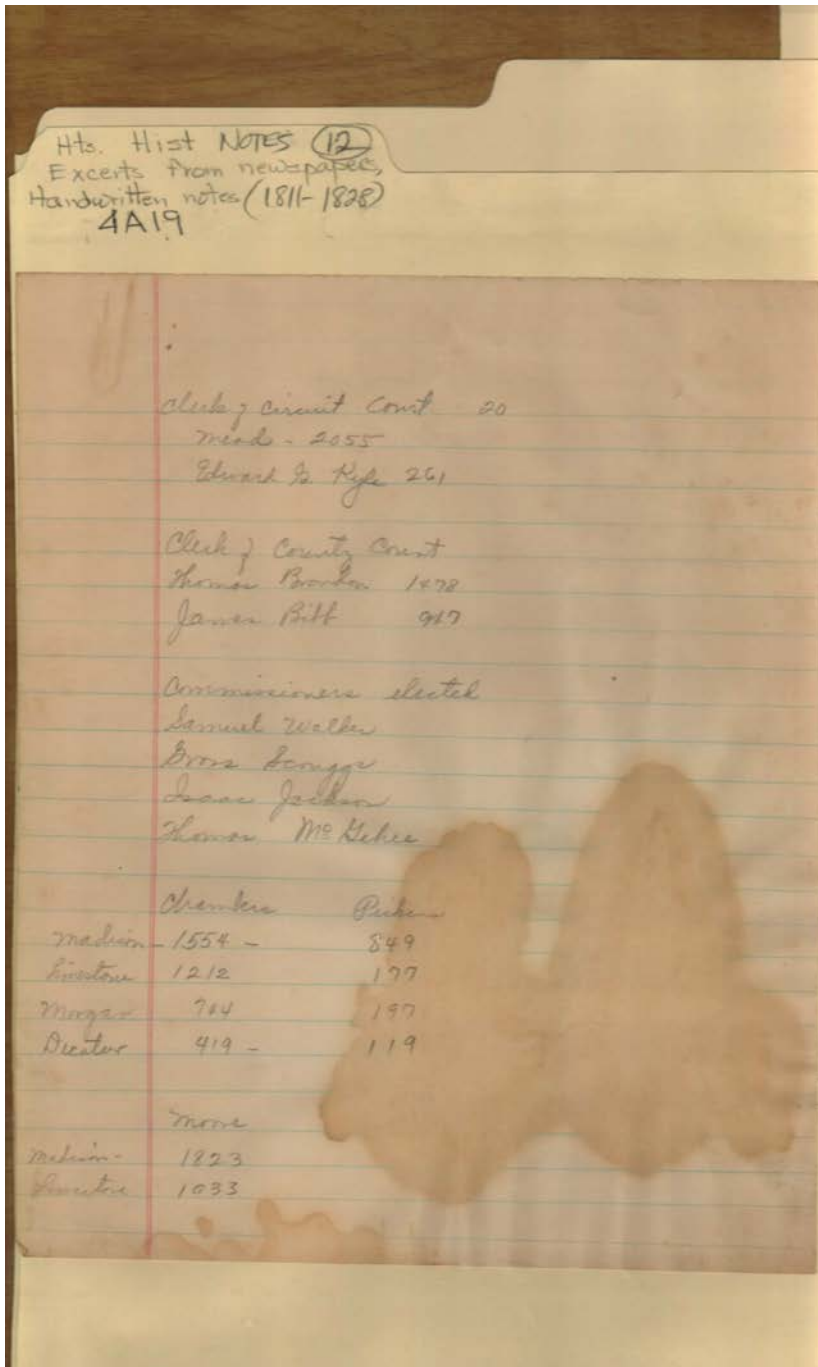 Hts. Hist NOTES (12)
Excerts from newspapers,
Handwritten notes (1811-1828)
4A19
Clerk of Circuit Court 20
Mead - 2055
Edward G. Kyle 261
Clerk of County Court
Thomas Brandon 1478
James Bibb 917
Commissioners elected
Samuel Walker
Gross Scruggs
Isaac Jackson
Thomas McGehee
Chambers Picken
Madison - 1554 - 849
Limestone 1212 177
Morgan 704 197
Decatur 419 - 119
Moore
Madison - 1823
Limestone 1033